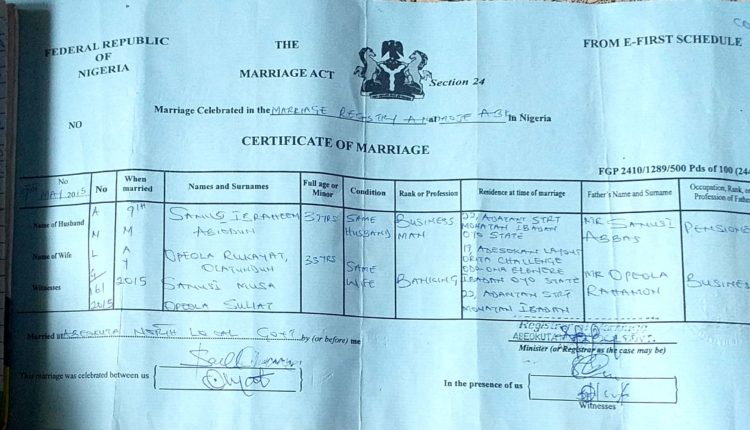 FEDERAL REPUBLIC
OF
NIGERIA
THE
MARRIAGE ACT
Section 24
FROM E-FIRST SCHEDULE
Marriage Celebrated in the MARRIAGE REGISTRY at In Nigeria
NO
CERTIFICATE OF MARRIAGE
FGP 2410/1289/500 Pds of 100 (24
No
MAY 2015
No
When married
Names and Surnames
Full age or Minor
Condition
Rank or Profession
Residence at time of marriage
Father's Name and Surname
Occupation, Rank, or Profession of Father
Name of Husband
9TH
M
A
Y
2015
SANUSI IBRAHEEM
ABIODUN
37YRS
SAME
HUSBAND
BUSINESS
MAN
22, STRT
MONATAN IBADAN
OYO STATE
MR SANUSI
ABBAS
PENSIONE
Name of Wife
OPEOLA RUKAYAT,
OLATUNDUN
33YRS
SAME
WIFE
BANKING
17, ADESOKAN
ORITA CHALLENGE
ODO-ONA ELENERE
IBADAN OYO STATE
MR OPEOLA
RAHAMON
BUSINES
Witnesses
2015
SANUSI MUSA
OPEOLA SULIAT
22, STRT
MONATAN IBADAN
Married at ABEOKUTA NORTH LOCAL GOVT by (or before) me
ABEOKUTA
Minister (or Registrar as the case may be)
This marriage was celebrated between us
In the presence of us
Witnesses